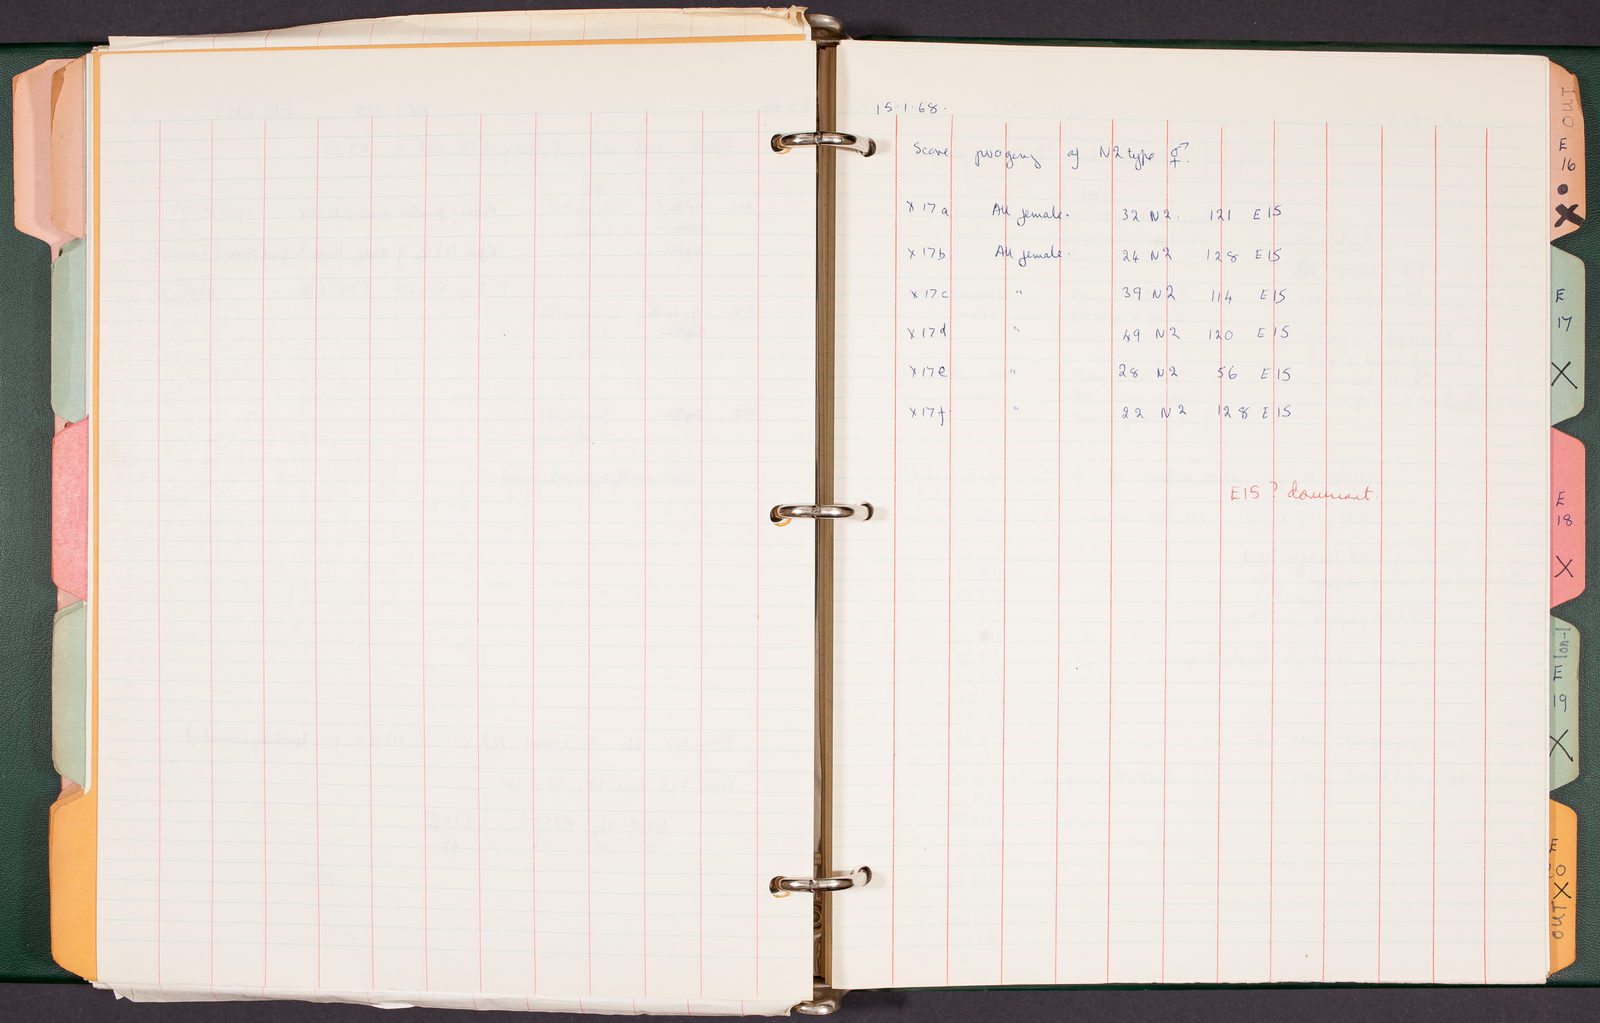 15.1.68.
Score progeny of N2 type ⚥.
X17a All female. 32 N2. 121 E15
X17b All female. 24 N2 128 E15
X17c " 39 N2 114 E15
X17d " 49 N2 120 E15
X17e " 28 N2 56 E15
X17f " 22 N2 128 E15
E15 ? dominant.
E
16
X
E
17
X
E
18
X
lon-1
E
19
X
E
20
X
OUT